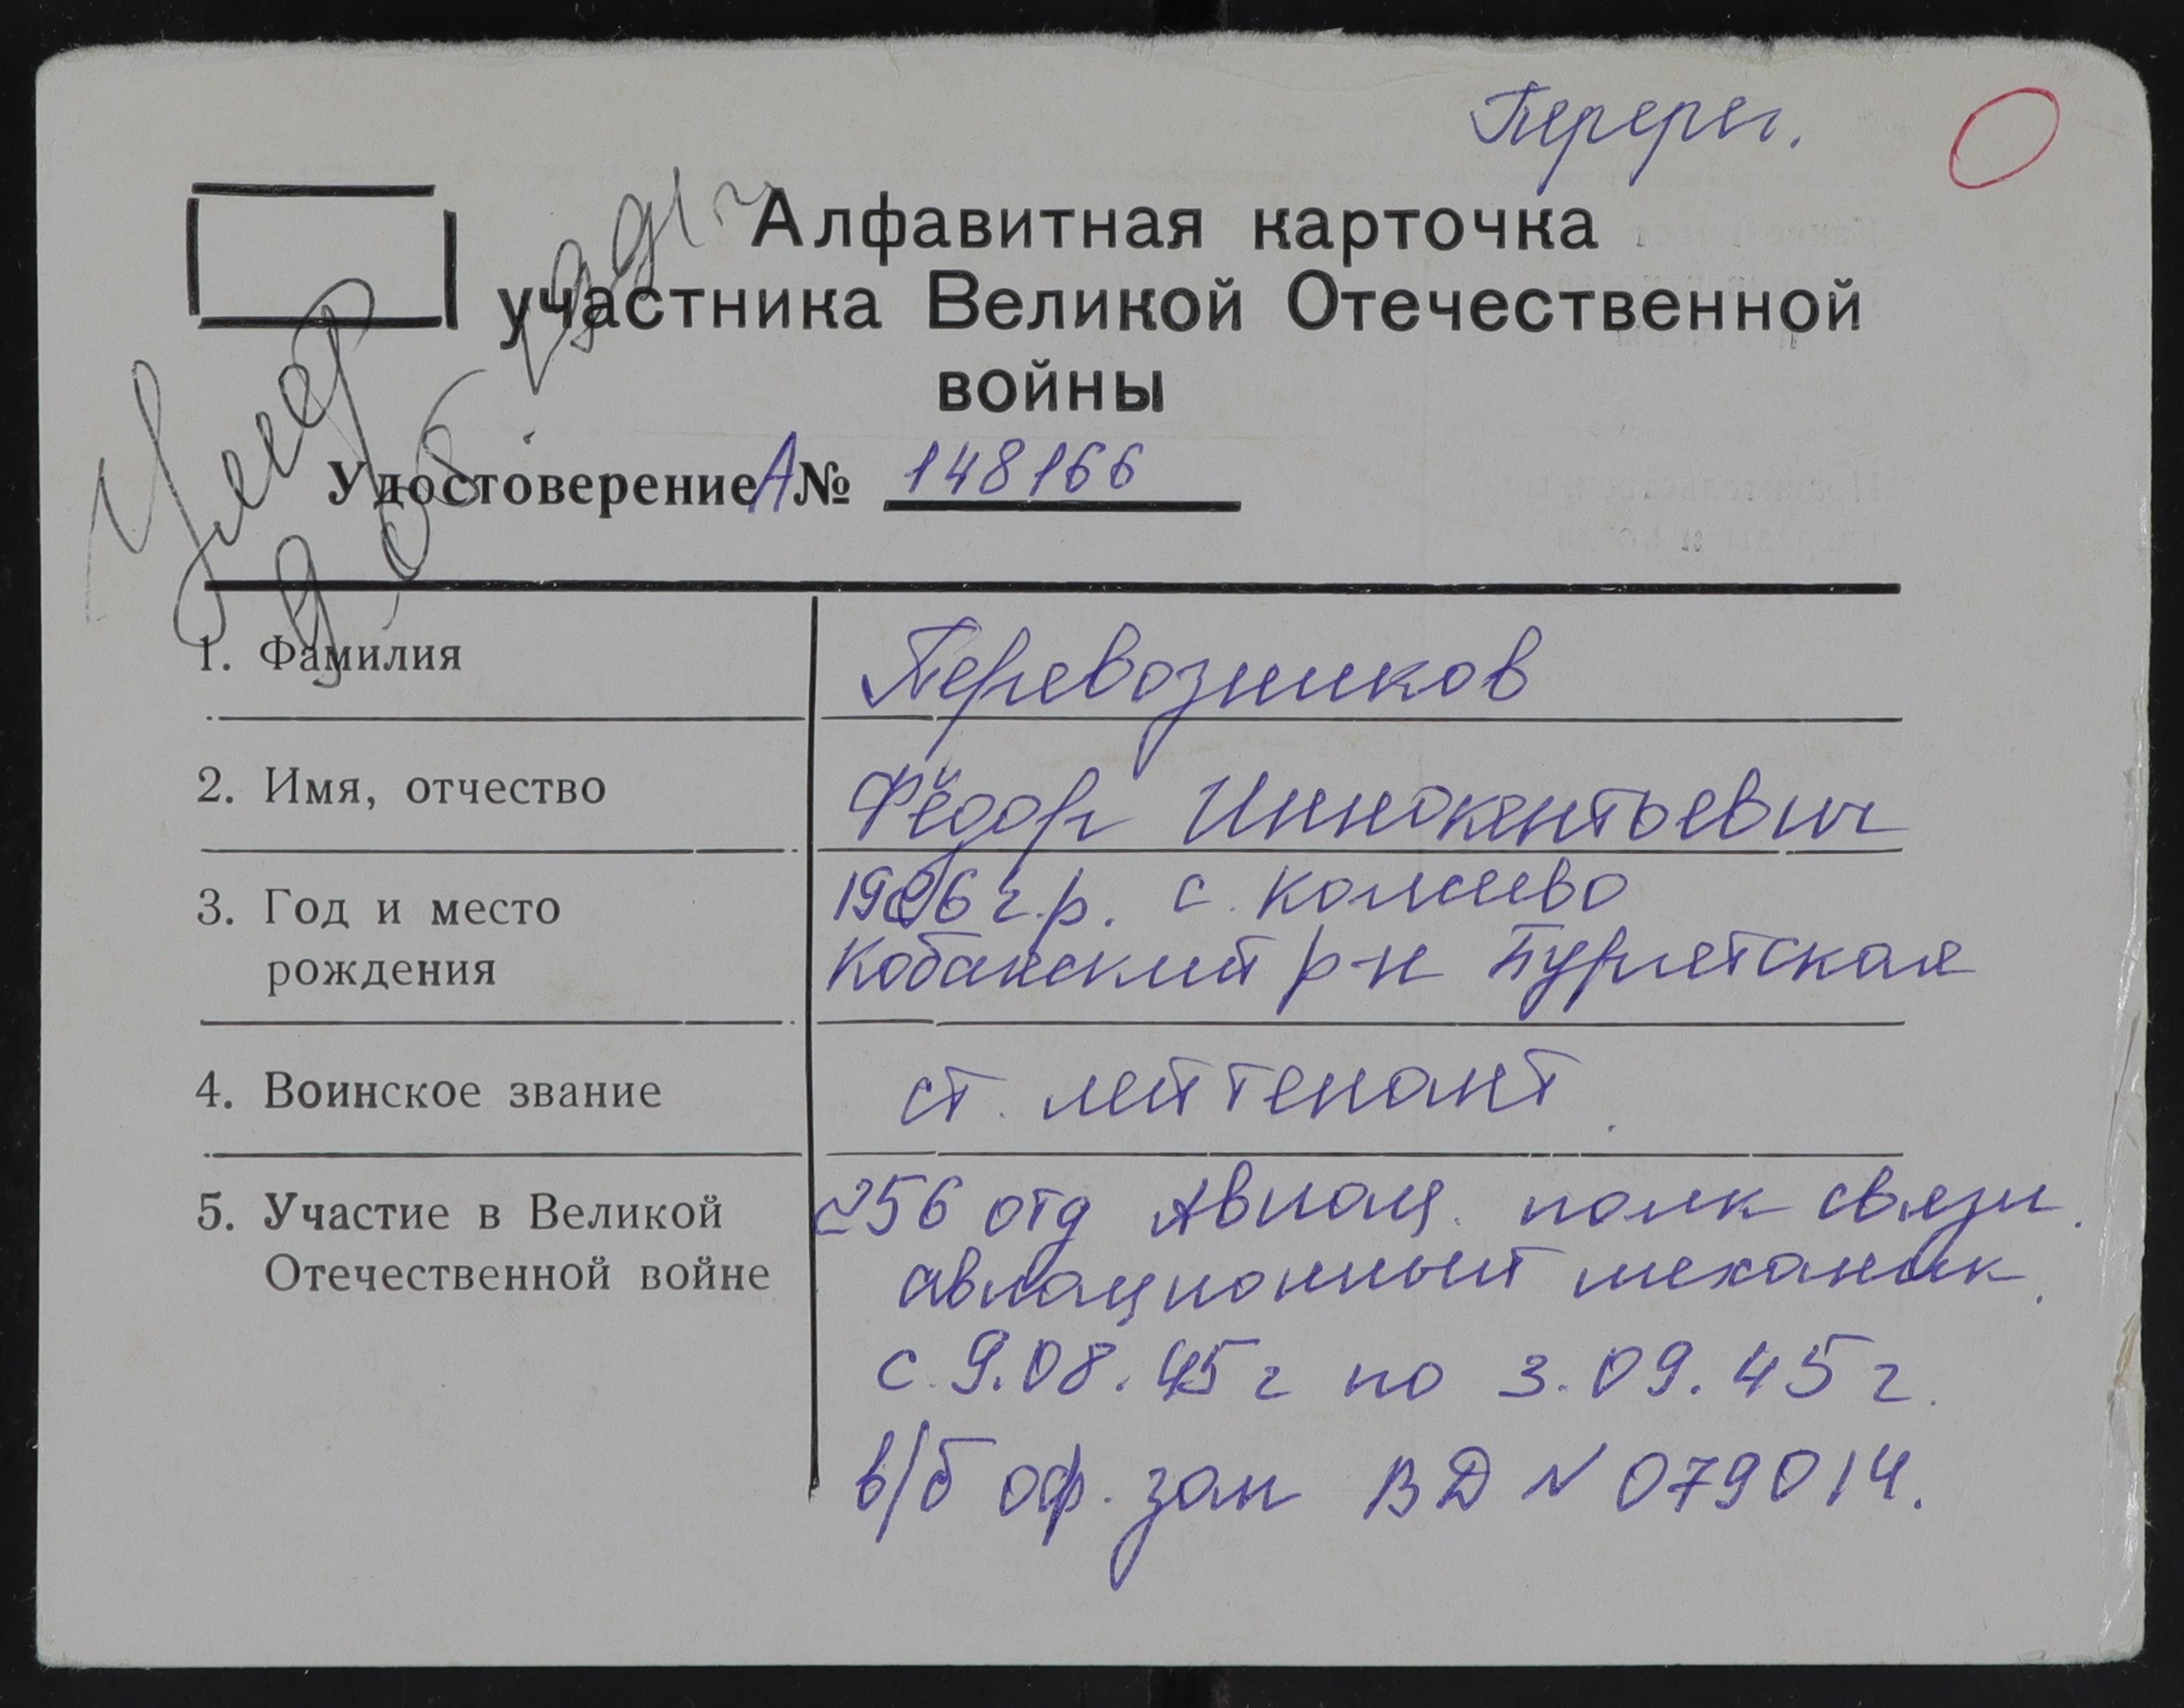 Перерег.
Алфавитная карточка
участника Великой Отечественной
войны
Умер
9.08.1991г
Удостоверение А № 148166
1. Фамилия
Перевозников
2. Имя, отчество
Фёдор Иннокентьевич
3. Год и место
рождения
г.р. с. Колесево
Кобанский р-н Бурятская
4. Воинское звание
ст. лейтенант.
5. Участие в Великой
Отечественной войне
256 отд Авиац. полк связи.
авиационный механик.
с 9.08.45г по 3.09.45г.
в/б оф. зап ВД № 079014.